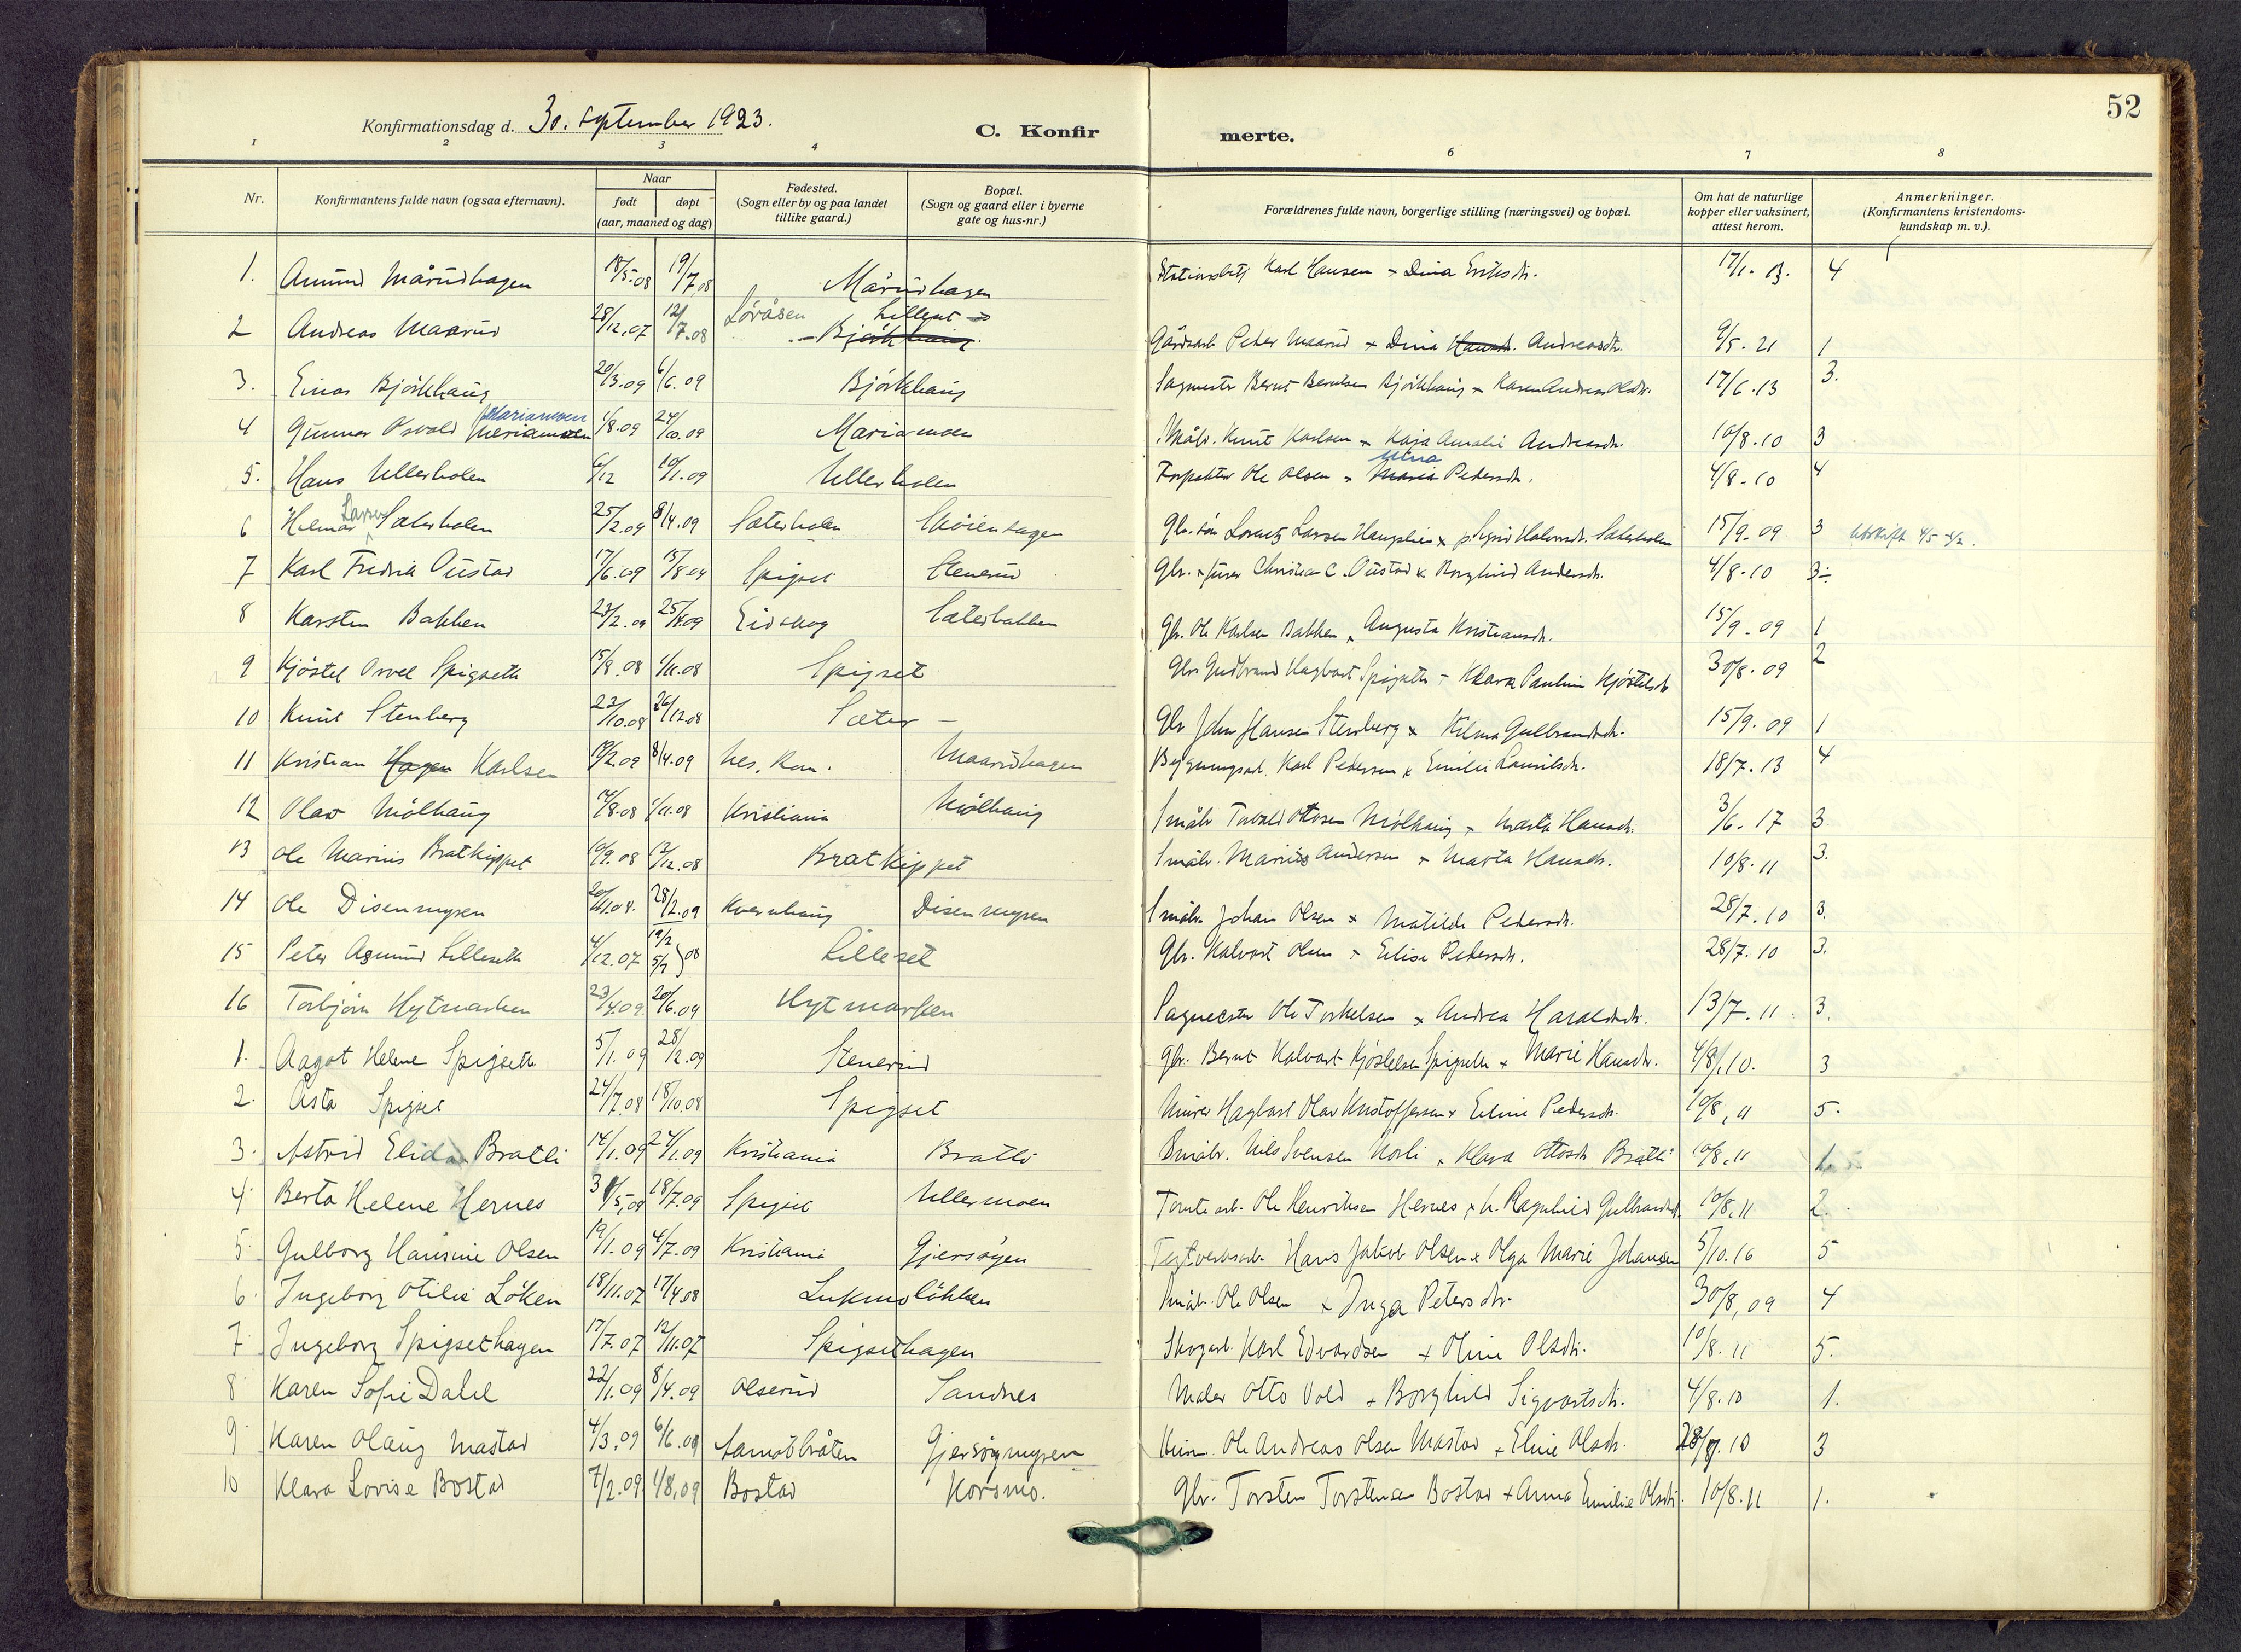 52
Konfirmationsdag d. 30. september 1923.
C. Konfirmerte.
1 2 3 4 6 7 8
Nr.
Konfirmantens fulde navn (ogsaa efternavn).
Naar
født døpt
(aar, maaned og dag)
Fødested.
(Sogn eller by og paa landet
tillike gaard.)
Bopæl.
(Sogn og gaard eller i byerne
gate og hus-nr.)
Forældrenes fulde navn, borgerlige stilling (næringsvei) og bopæl.
Om hat de naturlige
kopper eller vaksinert,
attest herom.
Anmerkninger.
(Konfirmantens kristendoms-
kundskap m. v.).
1. Amund Mårudhagen 18/5.08 19/7.08 Mårudhagen Karl Hansen × Dina Eriksdtr. 17/1. 13. 4
2 Andreas Maarud 28/12.07 12/7.08 Löråsen Lilleset Björkhaug Gårdsarb. Peter Maarud × Dina Hansd. Andreasdtr. 9/5. 21 1
3. Einar Björkhaug 20/3.09 6/6.09 Björkhaug Sagmester Bernt Berntsen Björkhaug × Karen Andrea Olsdtr. 17/6.13 3.
4 Gunnar Osvald Mariamoen Mariamoen 1/8.09 24/10.09 Mariamoen Småbr. Knut Karlsen × Kaja Amalie Andreasdr. 10/8.10 3
5. Hans Ullerholen 6/12 10/1.09 Ullerholen Ole Olsen × Maria Mina Pedersdr. 4/8-10 4
6 Hilmar Larsen Sæterholen 25/2.09 8/4.09 Sæterholen Skoienhagen Gbr. søn Lorentz Larsen × p. Sigrid Halvorsdr. Sæterholen 15/9.09 3 Utskrift 4/5
7 Karl Fredrik Oustad 17/6.09 15/8.09 Spigset Stenerud Gbr. Christian C. Oustad × Borghild Andersdr. 4/8-10 3÷
8 Karsten Bakken 23/2.09 25/4.09 Eidskog Sæterbakken Gbr. Ole Karlsen Bakken × Augusta Kristiansdr. 15/9.09 1
9 Kjöstel Orvel Spigseth 15/8.08 1/11.08 Spigset Gbr Gudbrand Hagbart Spigseth - Klara Pauline Kjöstelsdr 30/8.09 2
10 Knut Stenberg 22/10.08 26/12.08 Sæter - Gbr John Hansen Stenberg × Hilma Gulbrandsdr. 15/9.09 1
11 Kristian Hagen Karlsen 10/2.09 8/4.09 Nes, Rom. Maarudhagen Bygningsarb. Karl Pedersen × Emilie Lauritsdr. 18/7.13 4
12 Olav Mölhaug 14/8.08 1/11.08 Kristiania Mölhaug Småbr Torvald Ottosen Mölhaug × Marta Hansdr. 3/6.17 3
13 Ole Marius Bratkippet 10/9.08 12/12.08 Bratkippet Småbr. Marius Andersen × Marta Hansdr. 10/8.11 3.
14 Ole Disenmyren 20/11.08. 28/2.09 Kvernhaug Disenmyren Småbr. Johan Olsen × Matilde Pedersdr. 28/7.10 3.
15 Peter Asmund Lilleseth 4/12.07 19/2 5/7 } 08 Lilleset Gbr. Halvart Olsen × Elise Pedersdr. 28/7.10 3.
16 Torbjörn Hytmarken 23/4.09 20/6.09 Hytmarken Sagmester Ole Torkelsen × Andrea Haraldsdtr. 13/7.11 3.
1. Aagot Helene Spigseth 5/1.09 28/2.09 Stenerud Gbr. Bernt Halvart Kjöstelsen Spigseth × Marie Hansdr. 4/8.10. 3
2. Åsta Spigset 24/7.08 18/10.08 Spigset Murer Hagbart Olav Kristoffersen × Eline Pedersdr. 10/8,11 5.
3. Astrid Elida Bratli 14/1.09 24/1.09 Kristiania Bratli Småbr. Nils Svensen Norli × Klara Ottosdr. Bratli 10/8.11 1.
4 Berta Helene Hernes 31/5,09 18/7.09 Spigset Ullermoen Tomtearb. Ole Henriksen Hernes × h. Ragnhild Gulbrandsd. 10/8.11 2.
5. Gulborg Hansine Olsen 19/1.09 4/7.09 Kristiania Gjersöyen Teglverksarb. Hans Jakob Olsen × Olga Marie Johansen 5/10.16 5
6. Ingeborg Otilie Löken 18/11.07 17/4.08 Lukuslökken Småbr. Ole Olsen × Inga Petersdtr. 30/8,09 4
7. Ingeborg Spigsethagen 17/7.07 12/11.07 Spigsethagen Skogarb. Karl Edvardsen + Oline Olsdtr. 10/8.11 5.
8 Karen Sofie Dahl 22/1.09 8/4.09 Olserud Sandnes Maler Otto Vold + Borghild Sigvartsdtr. 4/8.10 1.
9 Karen Olaug Mastad 4/3.09 6/6.09 Gjersöymyren Ole Andreas Olsen Mastad × Eline Olsdr. 28/7.10 3
10 Klara Lovise Bostad 7/2.09 1/8.09 Bostad Korsmo. Gbr. Torsten Torstensen Bostad + Anna Emilie Olsdtr. 10/8.11 1.